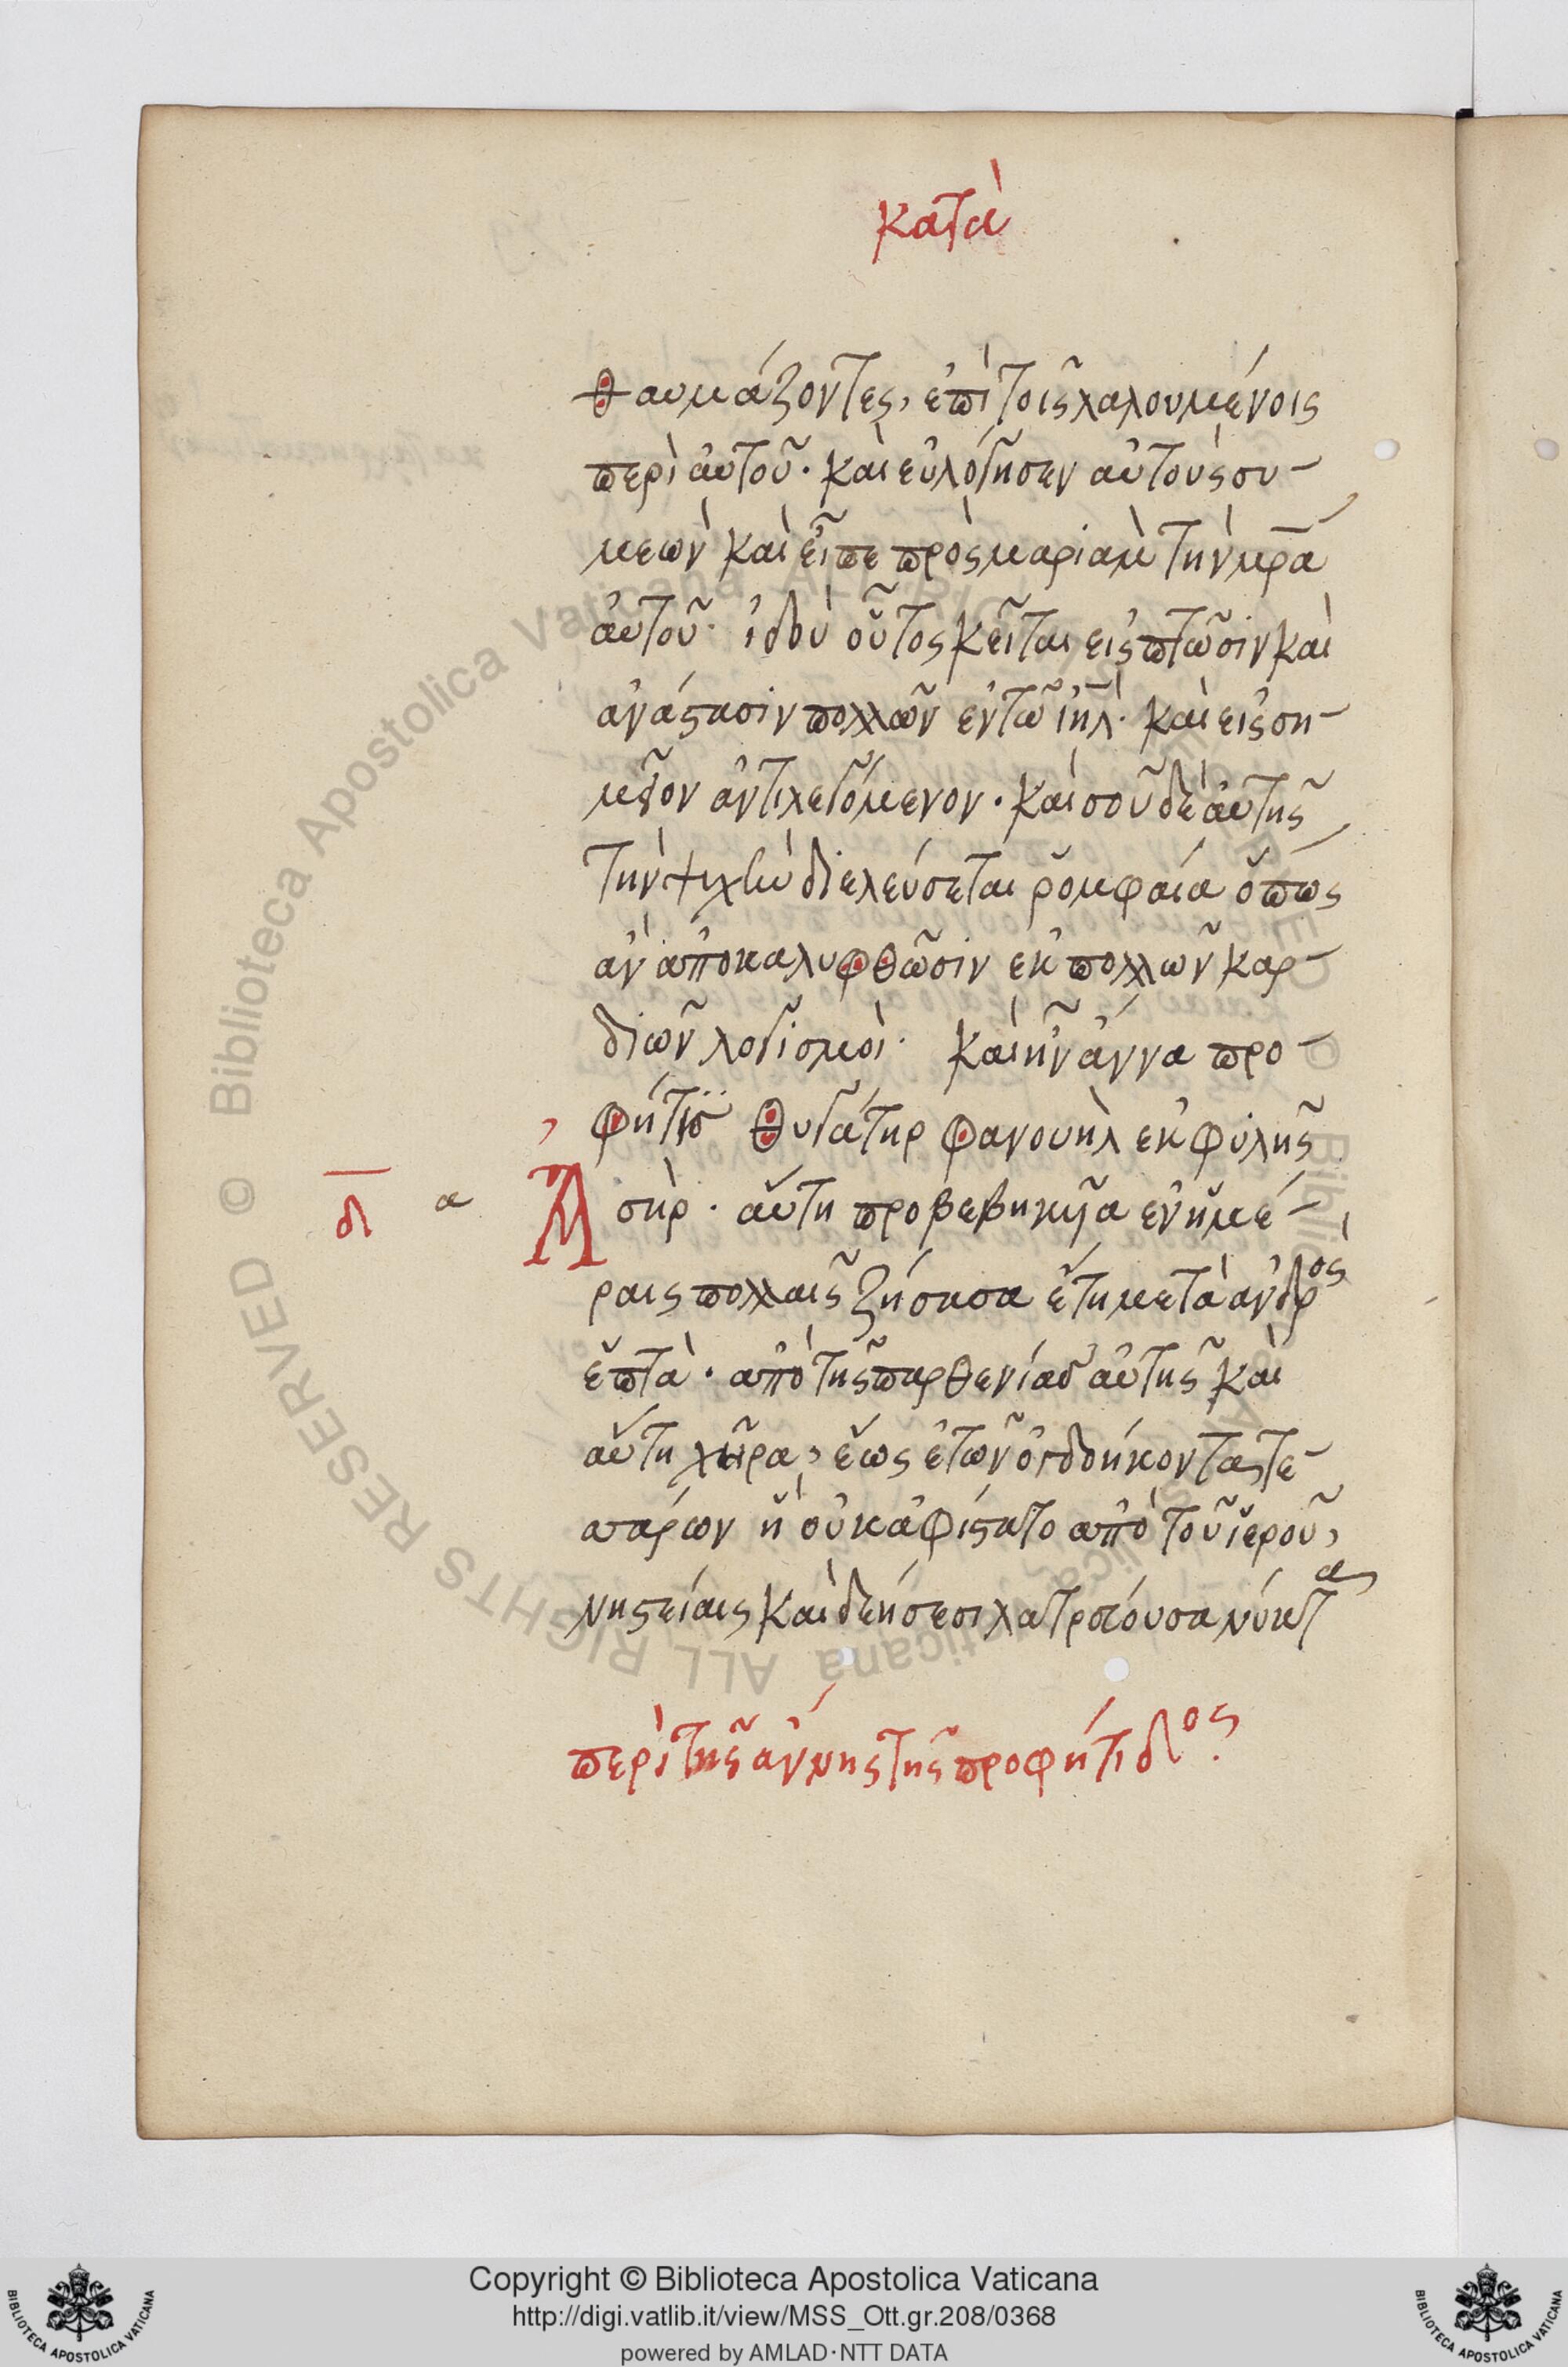 κατὰ
θαυμάζοντες, ἐπὶ τοῖς λαλουμένοις
περὶ αὐτοῦ. καὶ εὐλόγησεν αὐτοὺς συ-
μεὼν καὶ εἶπε πρὸς μαριὰμ τὴν μρ̅α
αὐτοῦ. ἰδοὺ οὗτος κεῖται εἰς πτῶσιν καὶ
ἀνάστασιν πολλῶν ἐν τῶ ἰη̅λ. καὶ εἰς ση-
μεῖον ἀντιλεγόμενον. καὶ σοῦ δὲ αὐτῆς
τὴν ψυχὴν διελεύσεται ῥομφαία ὅπως
ἂν ἀποκαλυφθῶσιν ἐκ πολλῶν καρ-
διῶν λογισμοὶ. καὶ ἦν ἄννα προ-
φήτις θυγάτηρ φανουὴλ ἐκ φυλῆς
δ̅ α Ἀσὴρ. αὕτη προβεβηκυῖα ἐν ἡμέ-
ραις πολλαῖς ζήσασα ἔτη μετὰ ἀνδρὸς
ἑπτὰ. ἀπὸ τῆς παρθενίας αὐτῆς καὶ
αὕτη χῆρα, ἕως ἐτῶν ὀγδοήκοντατε-
σσάρων ἣ οὐκ ἀφίστατο ἀπὸ τοῦ ἱεροῦ,
νηστείαις καὶ δεήσεσι λατρεύουσα νύκτα
περὶ τῆς ἄννης τῆς προφήτιδος.
Copyright © Biblioteca Apostolica Vaticana
http://digi.vatlib.it/view/MSS_Ott.gr.208/0368
powered by AMLAD·NTT DATA